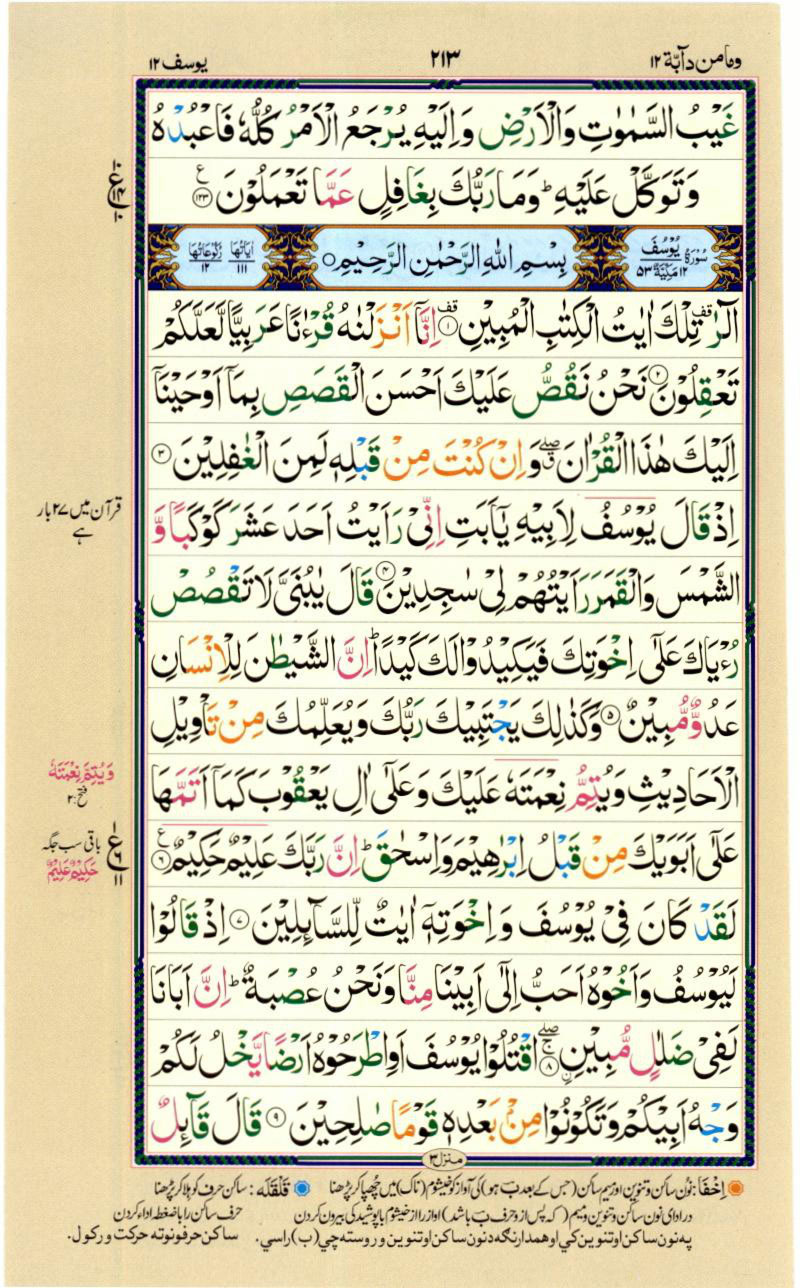 وما من دآبة ١٢
٢١٣
يوسف ١٢
غَيْبُ السَّمٰوٰتِ وَالْاَرْضِ وَاِلَيْهِ يُرْجَعُ الْاَمْرُ كُلُّهٗ فَاعْبُدْهُ
وَتَوَكَّلْ عَلَيْهِ ؕ وَمَا رَبُّكَ بِغَافِلٍ عَمَّا تَعْمَلُوْنَ ۧ ﴿۱۲۳﴾
ع ١٠ ١٤ ١٠
سُوْرَةُ يُوْسُفَ ١٢ مَكِّيَّةٌ ٥٣
بِسْمِ اللّٰهِ الرَّحْمٰنِ الرَّحِيْمِ ۝
اٰيَاتُهَا ١١١ رُكُوْعَاتُهَا ١٢
الٓرٰ ۟ تِلْكَ اٰيٰتُ الْكِتٰبِ الْمُبِيْنِ ۟ ﴿۱﴾ اِنَّاۤ اَنْزَلْنٰهُ قُرْءٰنًا عَرَبِيًّا لَّعَلَّكُمْ
تَعْقِلُوْنَ ﴿۲﴾ نَحْنُ نَقُصُّ عَلَيْكَ اَحْسَنَ الْقَصَصِ بِمَاۤ اَوْحَيْنَاۤ
اِلَيْكَ هٰذَا الْقُرْاٰنَ ۖ وَاِنْ كُنْتَ مِنْ قَبْلِهٖ لَمِنَ الْغٰفِلِيْنَ ﴿۳﴾
اِذْ قَالَ يُوْسُفُ لِاَبِيْهِ يٰۤاَبَتِ اِنِّىْ رَاَيْتُ اَحَدَ عَشَرَ كَوْكَبًا وَّ
قرآن میں ۲۷ بار ہے
الشَّمْسَ وَالْقَمَرَ رَاَيْتُهُمْ لِىْ سٰجِدِيْنَ ﴿۴﴾ قَالَ يٰبُنَىَّ لَا تَقْصُصْ
رُءْيَاكَ عَلٰٓى اِخْوَتِكَ فَيَكِيْدُوْا لَكَ كَيْدًا ؕ اِنَّ الشَّيْطٰنَ لِلْاِنْسَانِ
عَدُوٌّ مُّبِيْنٌ ﴿۵﴾ وَكَذٰلِكَ يَجْتَبِيْكَ رَبُّكَ وَيُعَلِّمُكَ مِنْ تَاْوِيْلِ
الْاَحَادِيْثِ وَيُتِمُّ نِعْمَتَهٗ عَلَيْكَ وَعَلٰٓى اٰلِ يَعْقُوْبَ كَمَاۤ اَتَمَّهَا
وَيُتِمَّ نِعْمَتَهٗ
فتح:۲
عَلٰٓى اَبَوَيْكَ مِنْ قَبْلُ اِبْرٰهِيْمَ وَاِسْحٰقَ ؕ اِنَّ رَبَّكَ عَلِيْمٌ حَكِيْمٌ ۧ ﴿۶﴾
باقی سب جگہ
حَكِيْمٌ عَلِيْمٌ
ع ١ ٦ ١١
لَقَدْ كَانَ فِىْ يُوْسُفَ وَاِخْوَتِهٖۤ اٰيٰتٌ لِّلسَّآئِلِيْنَ ﴿۷﴾ اِذْ قَالُوْا
لَيُوْسُفُ وَاَخُوْهُ اَحَبُّ اِلٰٓى اَبِيْنَا مِنَّا وَنَحْنُ عُصْبَةٌ ؕ اِنَّ اَبَانَا
لَفِىْ ضَلٰلٍ مُّبِيْنِ ۚ ۖ ﴿۸﴾ اۨقْتُلُوْا يُوْسُفَ اَوِ اطْرَحُوْهُ اَرْضًا يَّخْلُ لَكُمْ
وَجْهُ اَبِيْكُمْ وَتَكُوْنُوْا مِنْۢ بَعْدِهٖ قَوْمًا صٰلِحِيْنَ ﴿۹﴾ قَالَ قَآئِلٌ
منزل ٣
اِخْفَا: نون ساکن و تنوین اور میم ساکن (جس کے بعد ب ہو) کی آواز کو خیشوم (ناک) میں چھپا کر پڑھنا قَلْقَلَه: ساکن حرف کو ہلا کر پڑھنا
در ادای نون ساکن و تنوین و میم (که پس از و حرف ب باشد) آواز را از خیشوم با پوشیدگی بیرون کردن حرف ساکن را با ضغطه اداء کردن
په نون ساکن او تنوین کي او همدارنګه د نون ساکن او تنوین و روسته چي (ب) راسي. ساکن حرفو نو ته حرکت ورکول.